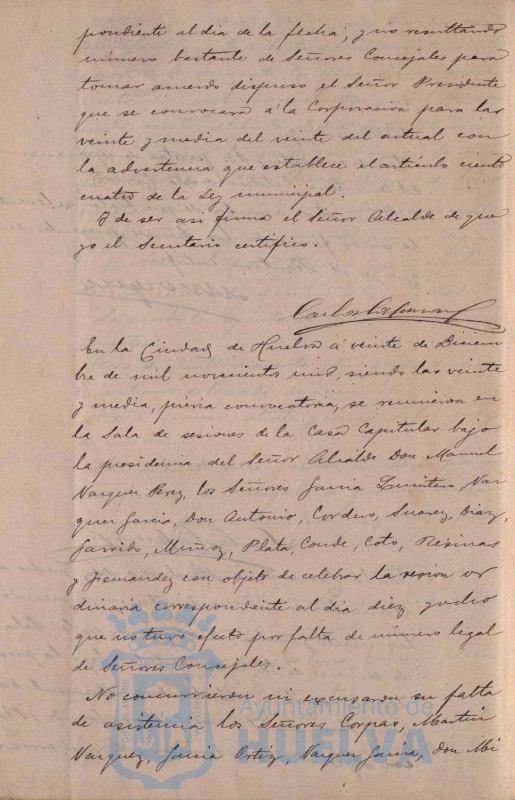 pondiente al dia de la fecha; y no resultando
número bastante de Señores Concejales para
tomar acuerdo dispuso el Señor Presidente
que se convocara á la Corporacion para las
veinte y media del veinte del actual con
la advertencia que establece el artículo ciento
cuatro de la Ley municipal.
Y de ser asi firma el Señor Alcalde de que
yo el Secretario certifico.
En la Ciudad de Huelva á veinte de Diciem
bre de mil novecientos uno, siendo las veinte
y media, prévia convocatoria, se reunieron en
la Sala de sesiones de la Casa Capitular bajo
la presidencia del Señor Alcalde Don Manuel
Vazquez Perez, los Señores Garcia Quintero, Vaz
quez Garcia, Don Antonio, Cordero, Suarez, Diaz,
Garrido, Muñoz, Plata, Conde, Coto, Resinas
y Fernandez con objeto de celebrar la sesion or
dinaria correspondiente al dia diez y ocho
que no tuvo efecto por falta de número legal
de Señores Concejales.
No concurrieron ni excusaron su falta
de asistencia los Señores Corpas, Martin
Vazquez, Garcia Ortiz, Vazquez Garcia, Don Mi
Ayuntamiento de
HUELVA